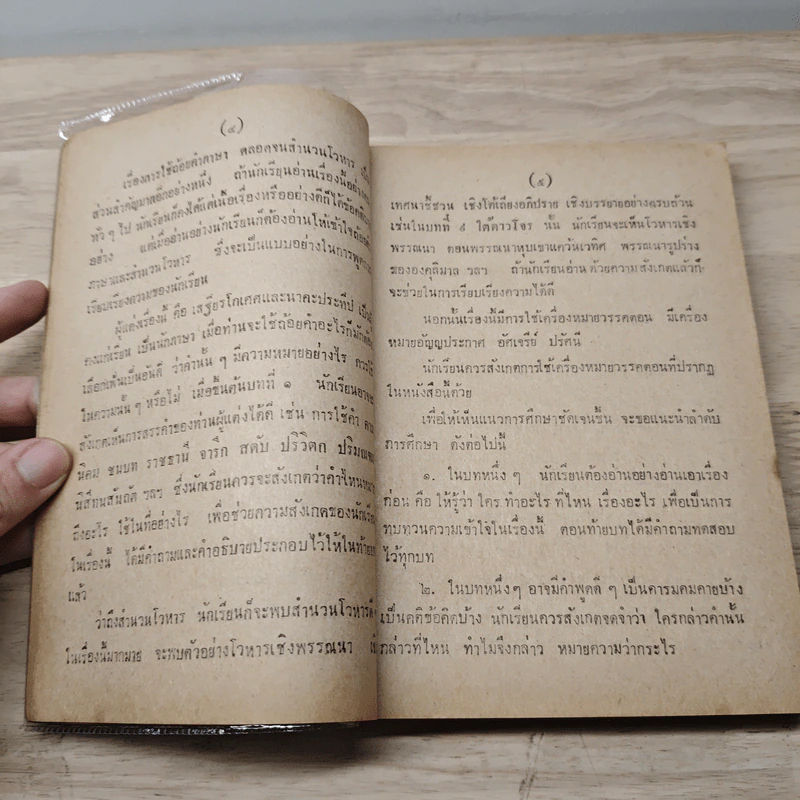 (๔)
เรื่องการใช้ถ้อยคำภาษา ตลอดจนสำนวนโวหาร
ส่วนสำคัญมากอีกอย่างหนึ่ง ถ้านักเรียนอ่านเรื่องนี้อย่าง
ทั่ว ๆ ไป นักเรียนก็คงได้แต่เนื้อเรื่องหรืออย่างดีก็ได้ข้อคติ
อย่าง แต่เมื่ออ่านอย่างนักเรียนก็ต้องอ่านให้เข้าใจถ้อย
ภาษาและสำนวนโวหาร ซึ่งจะเป็นแบบอย่างในการพูด
เรียบเรียงความของนักเรียน
ผู้แต่งเรื่องนี้ คือ เสฐียรโกเศศและนาคะประทีป เป็น
คงแก่เรียน เป็นนักภาษา เมื่อท่านจะใช้ถ้อยคำอะไรก็มัก
เลือกเฟ้นเป็นอันดี ว่าคำนั้น ๆ มีความหมายอย่างไร ควรใช้
ในความนั้น ๆ หรือไม่ เมื่อขึ้นต้นบทที่ ๑ นักเรียนอาจจะ
สังเกตเห็นการสรรคำของท่านผู้แต่งได้ดี เช่น การใช้คำ คาม
นิคม ชนบท ราชธานี จาริก สดับ ปริวิตก ปริมณฑล
นิสีทนสันถัต ฯลฯ ซึ่งนักเรียนควรจะสังเกตว่าคำไหนหมาย
ถึงอะไร ใช้ในที่อย่างไร เพื่อช่วยความสังเกตของนักเรียน
ในเรื่องนี้ ได้มีคำถามและคำอธิบายประกอบไว้ให้ในท้ายบท
แล้ว
ว่าถึงสำนวนโวหาร นักเรียนก็จะพบสำนวนโวหาร
ในเรื่องนี้มากมาย จะพบตัวอย่างโวหารเชิงพรรณนา
(๕)
เทศนาชี้ชวน เชิงโต้เถียงอภิปราย เชิงบรรยายอย่างครบถ้วน
เช่นในบทที่ ๕ ใต้ดาวโจร นั้น นักเรียนจะเห็นโวหารเชิง
พรรณนา ตอนพรรณนาหุบเขาแคว้นเวทิศ พรรณนารูปร่าง
ขององคุลิมาล ฯลฯ ถ้านักเรียนอ่านด้วยความสังเกตแล้วก็
จะช่วยในการเรียบเรียงความได้ดี
นอกนั้นเรื่องนี้มีการใช้เครื่องหมายวรรคตอน มีเครื่อง
หมายอัญญประกาศ อัศเจรีย์ ปรัศนี
นักเรียนควรสังเกตการใช้เครื่องหมายวรรคตอนที่ปรากฏ
ในหนังสือนี้ด้วย
เพื่อให้เห็นแนวการศึกษาชัดเจนขึ้น จะขอแนะนำลำดับ
การศึกษา ดังต่อไปนี้
๑. ในบทหนึ่ง ๆ นักเรียนต้องอ่านอย่างอ่านเอาเรื่อง
ก่อน คือ ให้รู้ว่า ใคร ทำอะไร ที่ไหน เรื่องอะไร เพื่อเป็นการ
ทบทวนความเข้าใจในเรื่องนี้ ตอนท้ายบทได้มีคำถามทดสอบ
ไว้ทุกบท
๒. ในบทหนึ่งๆ อาจมีคำพูดดี ๆ เป็นคารมคมคายบ้าง
เป็นคติข้อคิดบ้าง นักเรียนควรสังเกตจดจำว่า ใครกล่าวคำนั้น
กล่าวที่ไหน ทำไมจึงกล่าว หมายความว่ากระไร